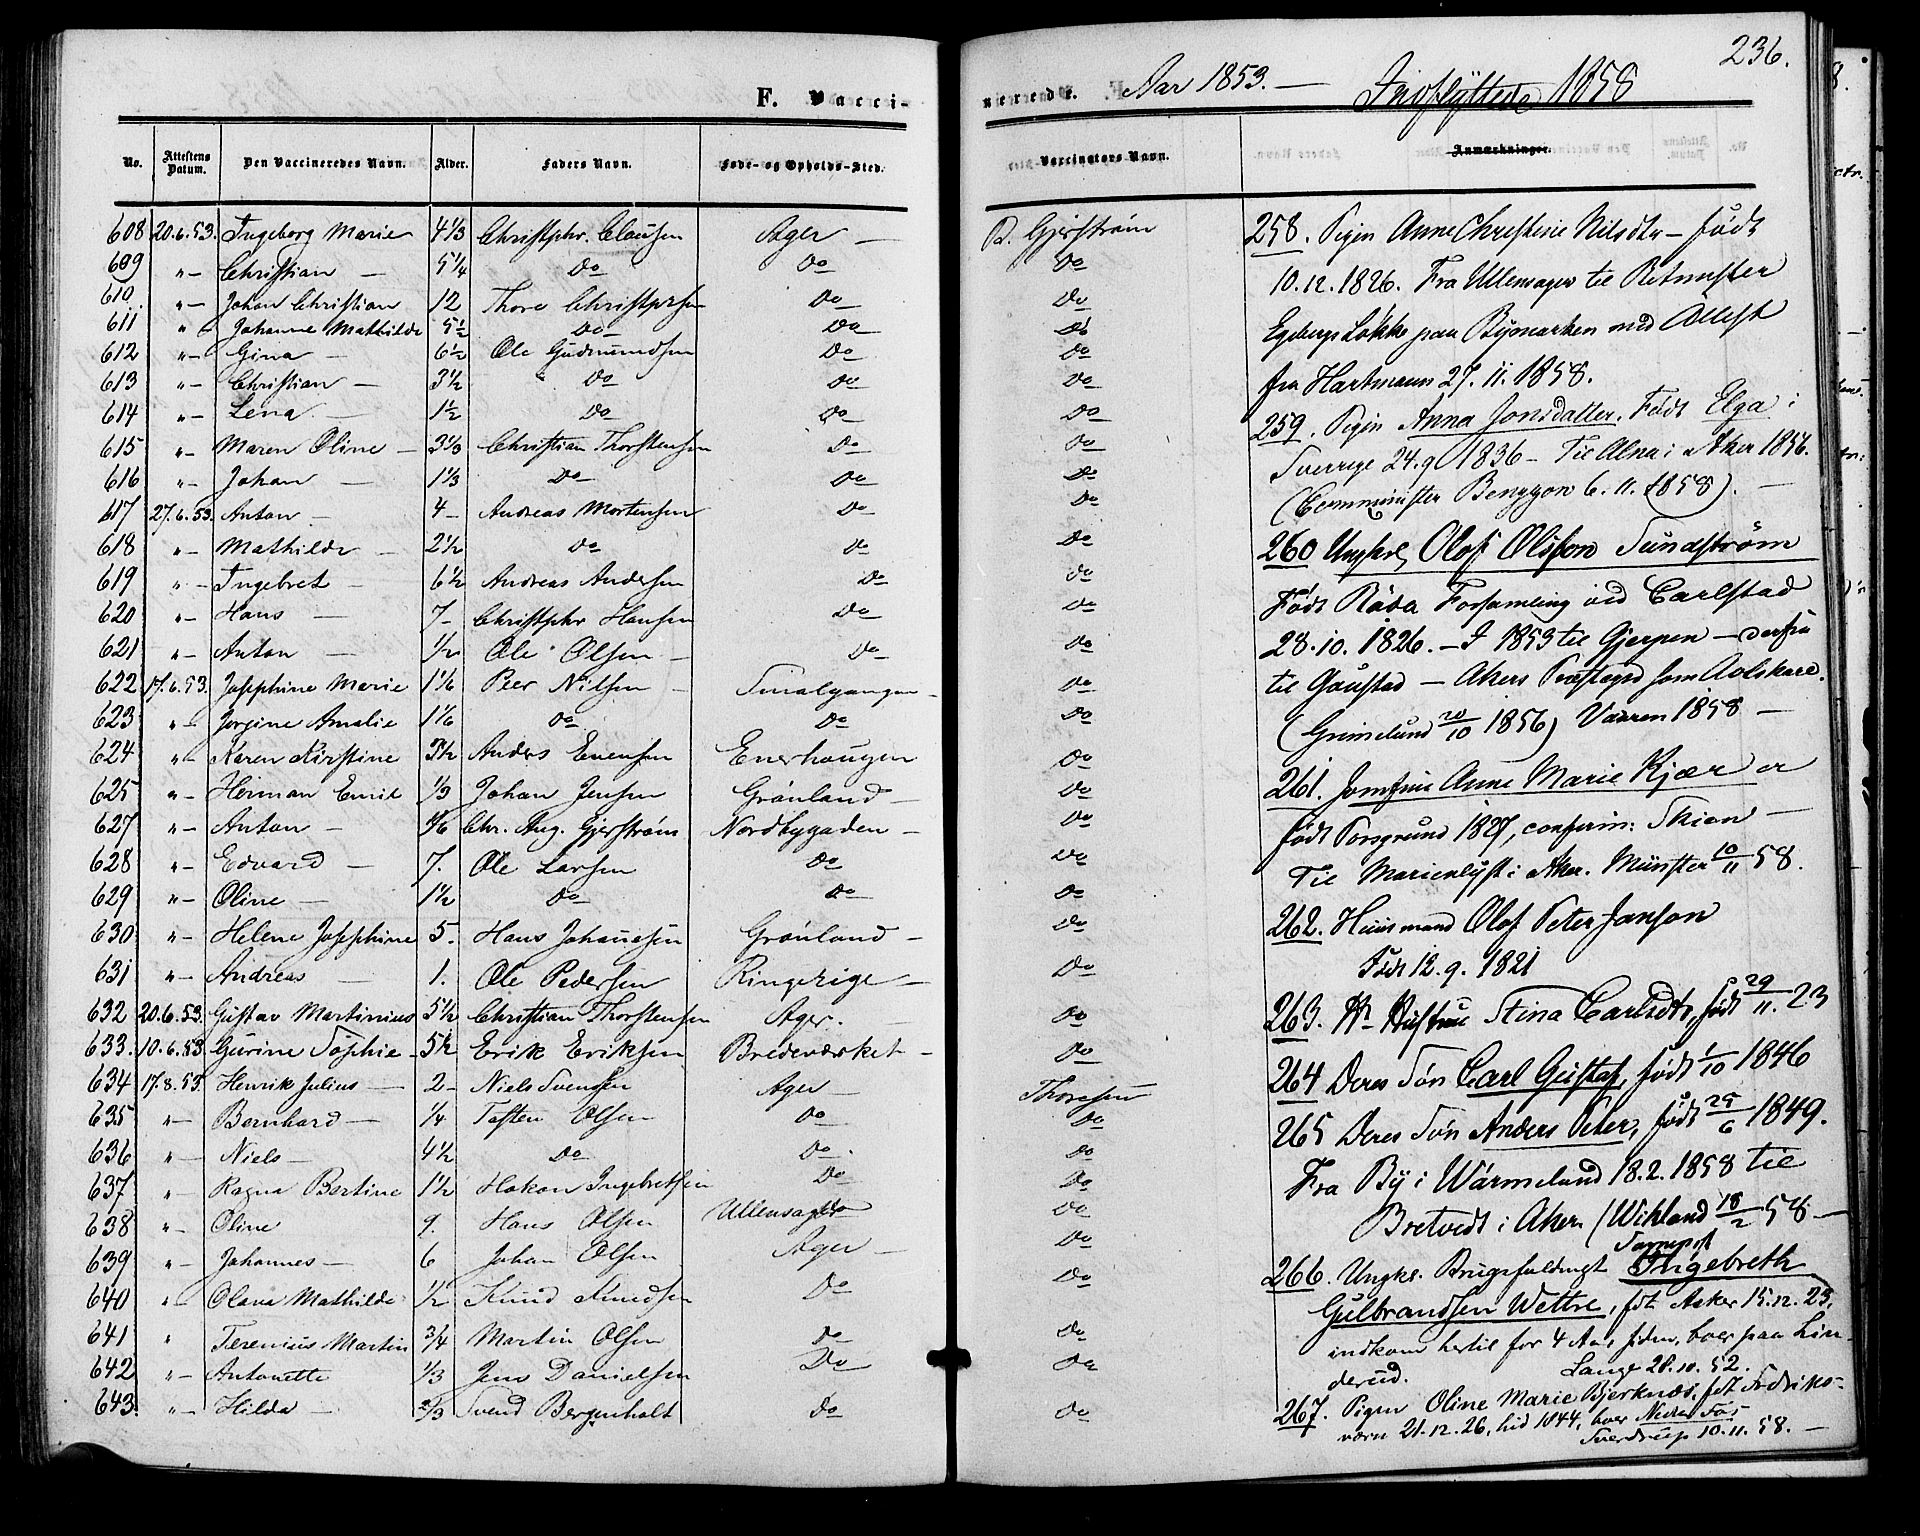 236.
F. Vacci-
nerende. Aar 1853. — Indflyttede 1858
No. Attestens Datum. Den Vaccineredes Navn. Alder. Faders Navn. Føde- og Opholds-Sted. Vaccinators Navn. Anmærkninger.
608 20.6.53. Ingeborg Marie 4 1/3 Christphr. Clausen Ager — B. Gjerstrøm
609 "— Christian — 5 1/4 Do Do Do
610 "— Johan Christian 12 Thore Christphersen Do Do
611 " Johanne Mathilde 5 1/2 Do Do Do
612 "— Gina — 6 1/2 Ole Gudmundsen Do Do
613 "— Christian — 3 1/2 Do Do Do
614 "— Lena — 1 1/2 Do Do Do
615 "— Maren Oline — 3 1/3 Christian Thorstensen Do Do
616 "— Johan — 1 1/3 Do Do Do
617 27.6.53. Anton — 4 — Andreas Mortensen Do Do
618 "— Mathilde — 2 1/2 Do Do Do
619 "— Ingebret — 6 1/2 Andreas Andersen Do Do
620 "— Hans — 7 — Christphr Hansen Do Do
621 "— Anton — 1/2 Ole Olsen — Do Do
622 17.6.53. Josephine Marie 1 1/6 Peer Nilsen — Smalgangen — Do
623 "— Jorgine Amalie 1 1/6 Do Do Do
624 "— Karen Kirstine 3 1/2 Anders Evensen Enerhougen Do
625 "— Herman Emil 1/3 Johan Jensen Grønland — Do
627 "— Anton — Chr. Aug. Gjerstrøm Nordbygaden — Do
628 "— Edvard — 7. Ole Larsen Do Do
629 "— Oline — 1 1/2 Do Do Do
630 "— Helene Josephine 5. Hans Johannesen Grønland — Do
631 "— Andreas — 1. Ole Pedersen Ringerige — Do
632 20.6.53. Gustav Martinius 5 1/2 Christian Thorstensen Ager. Do
633. 10.6.53. Gurine Sophie — 5 1/2 Erik Eriksen Bredeværket — Do
634 17.8.53. Henrik Julius — 2 — Niels Svensen Ager — Thoresen
635 "— Bernhard — 1/4 Tosten Olsen Do Do
636 "— Niels — 4 1/2 Do Do Do
637 "— Ragna Bertine 1 1/2 Hakon Ingebretsen Do Do
638 "— Oline 9. Hans Olsen Ullensager Do
639 "— Johannes — 6 Johan Olsen Ager — Do
640 "— Olava Mathilde 1/2 Knud Knudsen Do Do
641 " Terenius Martin 3/4 Martin Olsen Do Do
642 "— Antonette 1/3 Jens Danielsen Do Do
643. "— Hilda — 2/3 Svend Bergenholt Do Do
258. Pigen Anne Christine Nilsdtr — født
10.12.1826. Fra Ullensager til Retmester
Egebergs Løkke paa Bymarken med Attest
fra Hartmann 27.11.1858.
259. Pigen Anna Jonsdatter. Født Elga i
Sverrige 24.9 1836 — Til Alna i Aker 1856.
(Comminister Bengzon 6.11.1858). —
260 Ungkrl Olof Olsson Sundstrøm
Født Råda Forsamling ved Carlstad
28.10.1826. — I 1853 til Gjerpen — derfra
til Gaustad — Akers Præstegd som Avlskarl.
(Grimelund 20/10 1856) Vaaren 1858 —
261. Jomfrue Anne Marie Kjær er
født Porsgrund 1827, confirm: Skien —
Til Marienlyst i Aker. Münster 10/11 58.
262. Huusmand Olof Peter Janson
Født 12.9.1821
263. Hs Hustrue Stina Carlsdtr, født 29/11.23
264 Deres Søn Carl Gustaf, født 1/10 1846
265 Deres Søn Anders Peter, født 25/6 1849.
Fra By i Wärmeland 18.2.1858 til
Bretvedt i Aker (Wihland 18/2 58 —
266. Ungk. Brugsfuldmgt Ingebreth
Gulbrandsen Wettre, fdt Asker 15.12.23,
indkom hertil for 4 Aar siden, boer paa Lin-
derud. Lange 28.10.52.
267. Pigen Oline Marie Bjerknæs, fdt Fredriks-
værn 21.12.26, hid 1844, boer Nedre Fos
Sverdrup 10.11.58. —